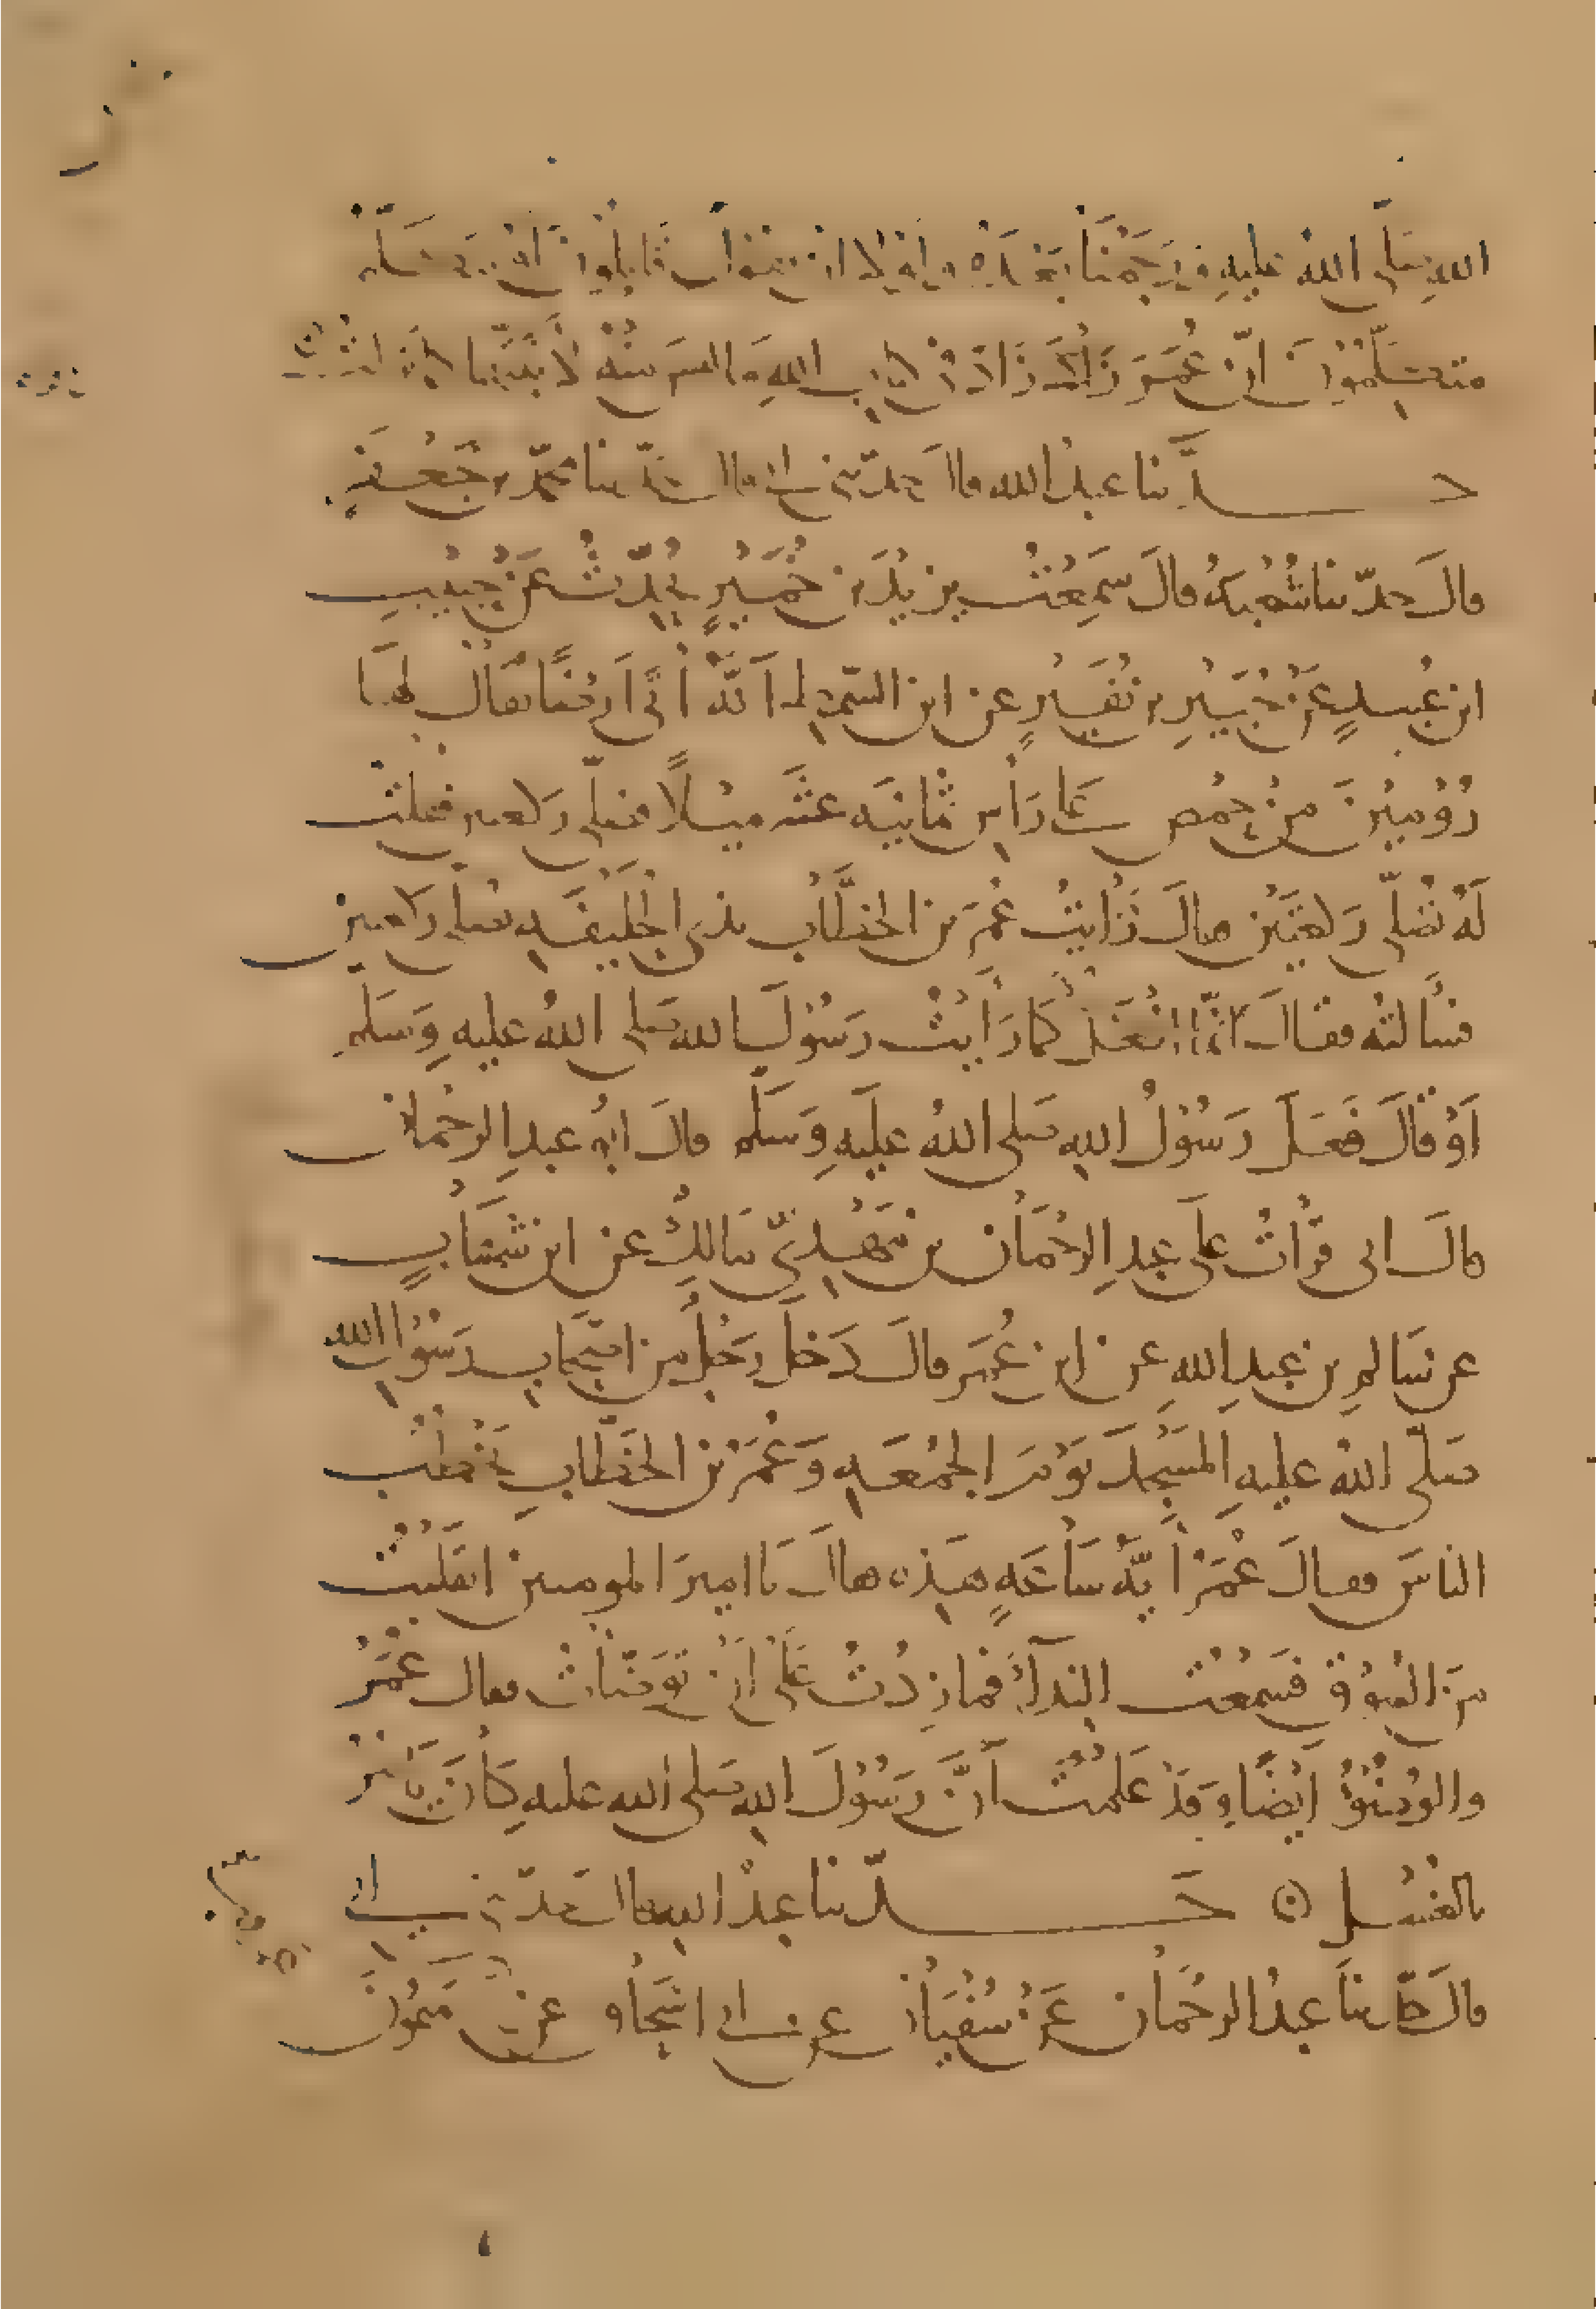 الله صلى الله عليه ورجمنا بعده وإني لولا أن يقول قائلون أو يتكلم
متكلمون أن عمر زاد في كتاب الله ما ليس منه لأثبتها كما نزلت
حدثنا عبد الله قال حدثني أبي قال حدثنا محمد بن جعفر
قال حدثنا شعبة قال سمعت يزيد بن خمير يحدث عن حبيب
ابن عبيد عن جبير بن نفير عن ابن السمط أنه أتى أرضا يقال لها
دومين من حمص على رأس ثمانية عشر ميلا فصلى ركعتين فقلت
له تصلي ركعتين فقال رأيت عمر بن الخطاب بذي الحليفة يصلي ركعتين
فسألته فقال إنما أفعل كما رأيت رسول الله صلى الله عليه وسلم
أو قال فعل رسول الله صلى الله عليه وسلم قال أبو عبد الرحمان
قال أبي قرأت على عبد الرحمان بن مهدي مالك عن ابن شهاب
عن سالم بن عبد الله عن ابن عمر قال دخل رجل من أصحاب رسول الله
صلى الله عليه المسجد يوم الجمعة وعمر بن الخطاب يخطب
الناس فقال عمر أية ساعة هذه فقال يا أمير المومنين انقلبت
من السوق فسمعت النداء فما زدت على أن توضأت فقال عمر
والوضوء أيضا وقد علمت أن رسول الله صلى الله عليه كان يأمر
بالغسل حدثنا عبد الله قال حدثني أبي
قال حدثنا عبد الرحمان عن سفيان عن أبي إسحاق عن عمرو بن ميمون